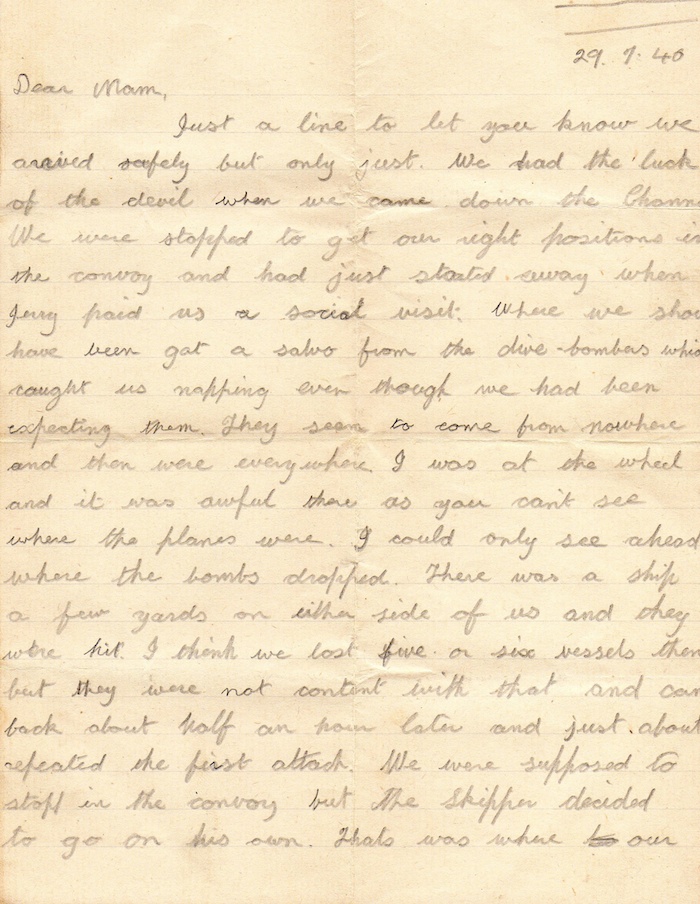 29. 7. 40
Dear Mam,
Just a line to let you know we
arrived safely but only just. We had the luck
of the devil when we came down the Channe
We were stopped to get our right positions in
the convoy and had just started away when
Jerry paid us a social visit. Where we shou
have been got a salvo from the dive-bombers whic
caught us napping even though we had been
expecting them. They seem to come from nowhere
and then were everywhere. I was at the wheel
and it was awful there as you can't see
where the planes were. I could only see ahead
where the bombs dropped. There was a ship
a few yards on either side of us and they
were hit. I think we lost five or six vessels then
but they were not content with that and cam
back about half an hour later and just about
repeated the first attack. We were supposed to
stop in the convoy but the Skipper decided
to go on his own. Thats was where our